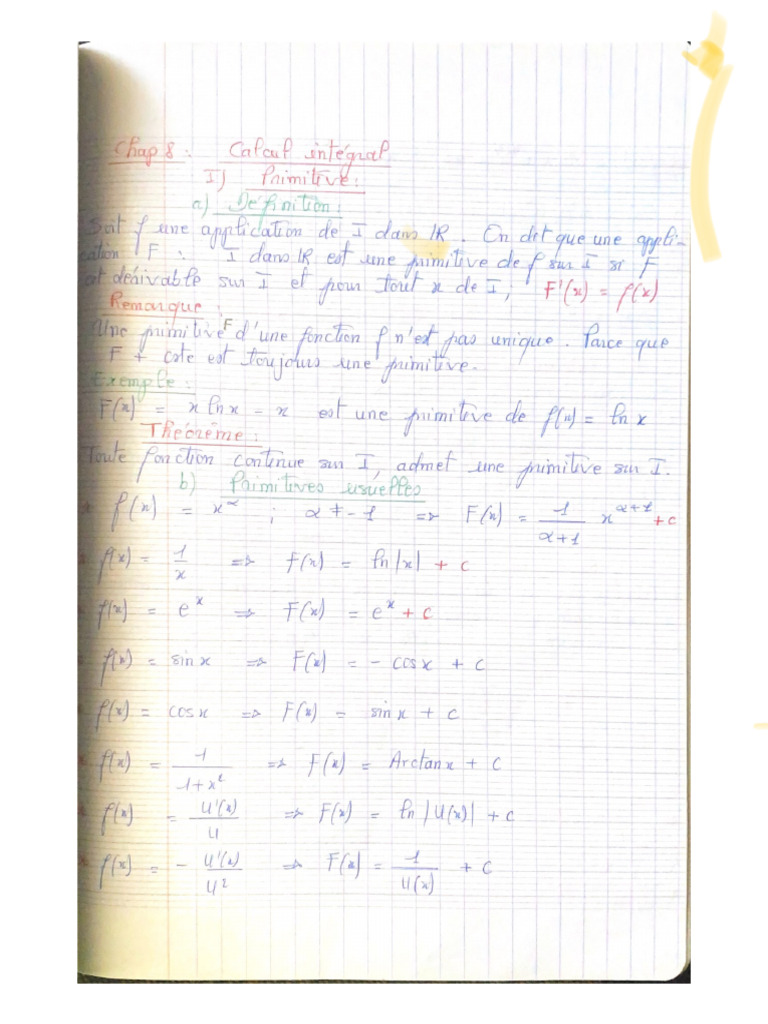 Chap 8 : Calcul intégral
I) Primitive :
a) Définition :
Soit f une application de I dans IR. On dit que une appli-
cation F : I dans IR est une primitive de f sur I si F
est dérivable sur I et pour tout x de I ; F'(x) = f(x)
Remarque :
Une primitive F d'une fonction f n'est pas unique. Parce que
F + cste est toujours une primitive.
Exemple :
F(x) = x ln x - x est une primitive de f(x) = ln x
Théorème :
Toute fonction continue sur I, admet une primitive sur I.
b) Primitives usuelles
* f(x) = x^α ; α ≠ -1 => F(x) = 1/(α+1) x^(α+1) + c
* f(x) = 1/x => f(x) = ln|x| + c
* f(x) = e^x => F(x) = e^x + c
* f(x) = sin x => F(x) = - cos x + c
* f(x) = cos x => F(x) = sin x + c
* f(x) = 1/(1+x²) => F(x) = Arctan x + c
* f(x) = U'(x)/U => F(x) = ln |U(x)| + c
* f(x) = - U'(x)/U² => F(x) = 1/U(x) + c